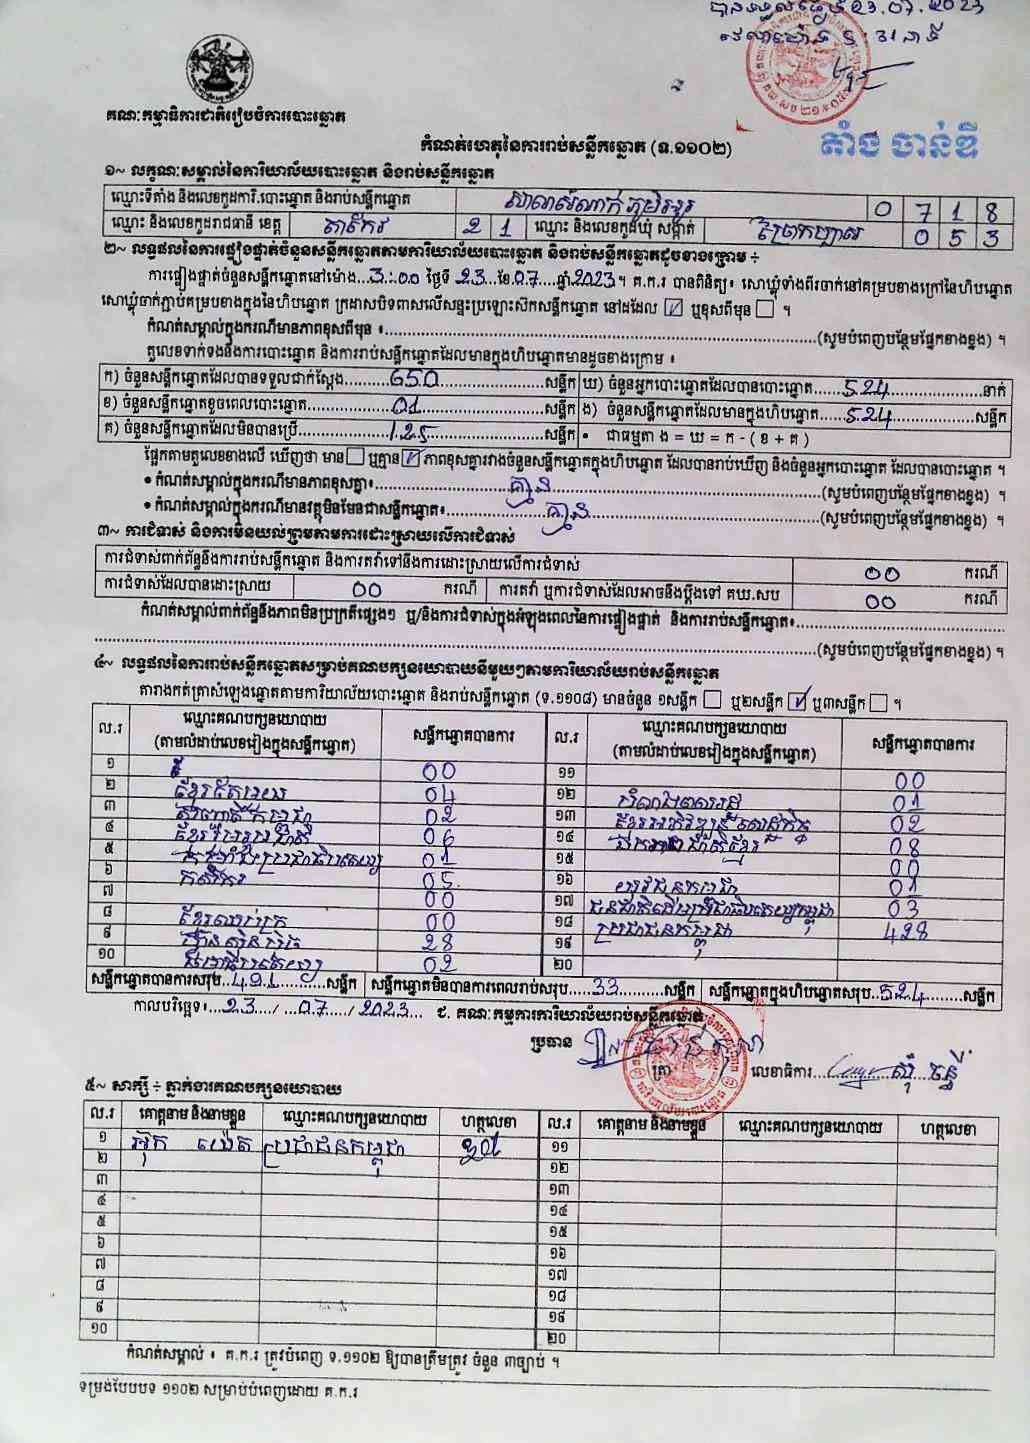 បានទទួលនៅថ្ងៃ 23.07.2023
គណៈកម្មាធិការជាតិរៀបចំការបោះឆ្នោត
តាំង ចាន់ឌី
កំណត់ហេតុនៃការរាប់សន្លឹកឆ្នោត (ទ.១១០២)
១~ លក្ខណៈសម្គាល់នៃការិយាល័យបោះឆ្នោត និងរាប់សន្លឹកឆ្នោត
ឈ្មោះទីតាំង និងលេខកូដការិ.បោះឆ្នោត និងរាប់សន្លឹកឆ្នោត 0 7 1 8
ឈ្មោះ និងលេខកូដរាជធានី ខេត្ត តាកែវ 2 1 ឈ្មោះ និងលេខកូដឃុំ សង្កាត់ 0 5 3
២~ លទ្ធផលនៃការផ្ទៀងផ្ទាត់ចំនួនសន្លឹកឆ្នោតតាមការិយាល័យបោះឆ្នោត និងរាប់សន្លឹកឆ្នោតដូចខាងក្រោម ÷
ការផ្ទៀងផ្ទាត់ចំនួនសន្លឹកឆ្នោតនៅម៉ោង..3:00 ថ្ងៃទី 23 ខែ.07 ឆ្នាំ 2023។ គ.ក.រ បានពិនិត្យ៖ សោឃ្លុំទាំងពីរចាក់នៅគម្របខាងក្រៅនៃហិបឆ្នោត
សោឃ្លុំចាក់ភ្ជាប់គម្របខាងក្នុងនៃហិបឆ្នោត ក្រដាសបិទពាសលើសន្ទះប្រឡោះស៊កសន្លឹកឆ្នោត នៅដដែល ☑ ឬខុសពីមុន ☐ ។
កំណត់សម្គាល់ក្នុងករណីមានភាពខុសពីមុន ៖ (សូមបំពេញបន្ថែមផ្នែកខាងខ្នង) ។
តួលេខទាក់ទងនឹងការបោះឆ្នោត និងការរាប់សន្លឹកឆ្នោតដែលមានក្នុងហិបឆ្នោតមានដូចខាងក្រោម ៖
ក) ចំនួនសន្លឹកឆ្នោតដែលបានទទួលជាក់ស្តែង 650 សន្លឹក ឃ) ចំនួនអ្នកបោះឆ្នោតដែលបានបោះឆ្នោត 524 នាក់
ខ) ចំនួនសន្លឹកឆ្នោតខូចពេលបោះឆ្នោត 01 សន្លឹក ង) ចំនួនសន្លឹកឆ្នោតដែលមានក្នុងហិបឆ្នោត 524 សន្លឹក
គ) ចំនួនសន្លឹកឆ្នោតដែលមិនបានប្រើ 125 សន្លឹក • ជាធម្មតា ង = ឃ = ក - ( ខ + គ )
ផ្អែកតាមតួលេខខាងលើ ឃើញថា មាន ☐ ឬគ្មាន ☑ ភាពខុសគ្នារវាងចំនួនសន្លឹកឆ្នោតក្នុងហិបឆ្នោត ដែលបានរាប់ឃើញ និងចំនួនអ្នកបោះឆ្នោត ដែលបានបោះឆ្នោត ។
• កំណត់សម្គាល់ក្នុងករណីមានភាពខុសគ្នា៖ គ្មាន (សូមបំពេញបន្ថែមផ្នែកខាងខ្នង) ។
• កំណត់សម្គាល់ក្នុងករណីមានវត្ថុមិនមែនជាសន្លឹកឆ្នោត៖ គ្មាន (សូមបំពេញបន្ថែមផ្នែកខាងខ្នង) ។
៣~ ការជំទាស់ និងការមិនយល់ព្រមតាមការដោះស្រាយលើការជំទាស់
ការជំទាស់ពាក់ព័ន្ធនឹងការរាប់សន្លឹកឆ្នោត និងការតវ៉ាទៅនឹងការដោះស្រាយលើការជំទាស់ 00 ករណី
ការជំទាស់ដែលបានដោះស្រាយ 00 ករណី ការតវ៉ា ឬការជំទាស់ដែលអាចនឹងប្តឹងទៅ គឃ.សប 00 ករណី
កំណត់សម្គាល់ពាក់ព័ន្ធនឹងភាពមិនប្រក្រតីផ្សេងៗ ឬ/និងការជំទាស់ក្នុងអំឡុងពេលនៃការផ្ទៀងផ្ទាត់ និងការរាប់សន្លឹកឆ្នោត៖
(សូមបំពេញបន្ថែមផ្នែកខាងខ្នង) ។
៤~ លទ្ធផលនៃការរាប់សន្លឹកឆ្នោតសម្រាប់គណបក្សនយោបាយនីមួយៗតាមការិយាល័យរាប់សន្លឹកឆ្នោត
តារាងកត់ត្រាសំឡេងឆ្នោតតាមការិយាល័យបោះឆ្នោត និងរាប់សន្លឹកឆ្នោត (ទ.១១០៨) មានចំនួន ១សន្លឹក ☐ ឬ២សន្លឹក ☑ ឬ៣សន្លឹក ☐ ។
ល.រ ឈ្មោះគណបក្សនយោបាយ (តាមលំដាប់លេខរៀងក្នុងសន្លឹកឆ្នោត) សន្លឹកឆ្នោតបានការ ល.រ ឈ្មោះគណបក្សនយោបាយ (តាមលំដាប់លេខរៀងក្នុងសន្លឹកឆ្នោត) សន្លឹកឆ្នោតបានការ
១ 00 ១១ 00
២ 04 ១២ 01
៣ 02 ១៣ ខ្មែរអភិវឌ្ឍន៍សេដ្ឋកិច្ច 02
៤ ខ្មែររួបរួមជាតិ 06 ១៤ 08
៥ 01 ១៥ 00
៦ កសិករ 05 ១៦ យុវជនកម្ពុជា 01
៧ 00 ១៧ ជនជាតិដើមប្រជាធិបតេយ្យកម្ពុជា 03
៨ ខ្មែរឈប់ក្រ 00 ១៨ ប្រជាជនកម្ពុជា 428
៩ ហ៊្វុនស៊ិនប៉ិច 28 ១៩
១០ 02 ២០
សន្លឹកឆ្នោតបានការសរុប 491 សន្លឹក សន្លឹកឆ្នោតមិនបានការពេលរាប់សរុប 33 សន្លឹក សន្លឹកឆ្នោតក្នុងហិបឆ្នោតសរុប 524 សន្លឹក
កាលបរិច្ឆេទ៖ 23 / 07 / 2023 ជ. គណៈកម្មការការិយាល័យរាប់សន្លឹកឆ្នោត
ប្រធាន ត្រា លេខាធិការ
៥~ សាក្សី ÷ ភ្នាក់ងារគណបក្សនយោបាយ
ល.រ គោត្តនាម និងនាមខ្លួន ឈ្មោះគណបក្សនយោបាយ ហត្ថលេខា ល.រ គោត្តនាម និងនាមខ្លួន ឈ្មោះគណបក្សនយោបាយ ហត្ថលេខា
១ អ៊ុក ប្រជាជនកម្ពុជា ១១
២ ១២
៣ ១៣
៤ ១៤
៥ ១៥
៦ ១៦
៧ ១៧
៨ ១៨
៩ ១៩
១០ ២០
កំណត់សម្គាល់ ៖ គ.ក.រ ត្រូវបំពេញ ទ.១១០២ ឱ្យបានត្រឹមត្រូវ ចំនួន ៣ច្បាប់ ។
ទម្រង់បែបបទ ១១០២ សម្រាប់បំពេញដោយ គ.ក.រ